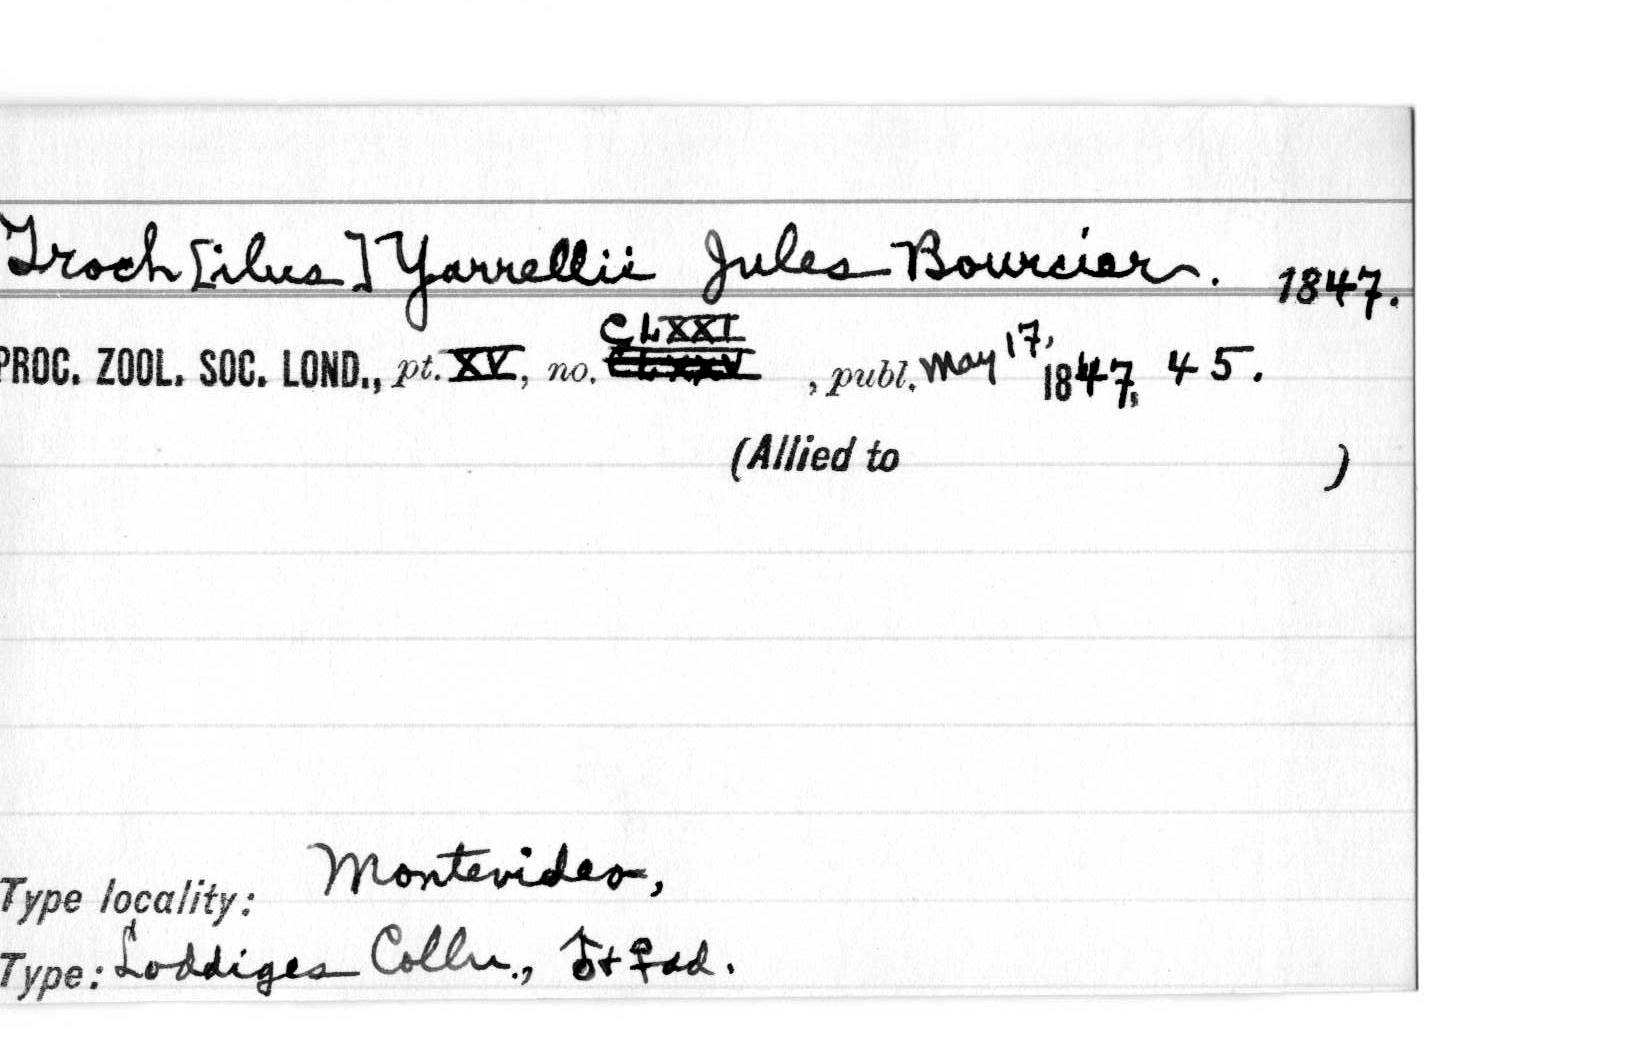 Troch[ilus] Yarrellii Jules Bourcier. 1847.
PROC. ZOOL. SOC. LOND., pt. XV, no. CLXXI, publ. May 17, 1847, 45.
(Allied to )
Type locality: Montevideo,
Type: Loddiges Colln., ♂+♀ad.